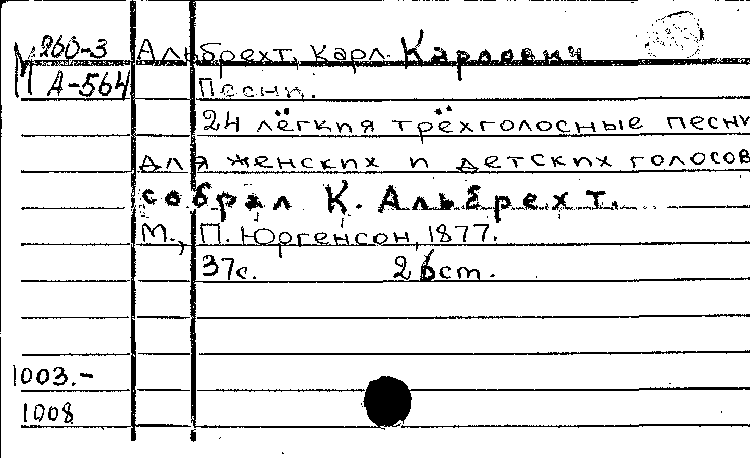 М 260-3 Альбрехт, Карл Карлович
А-564 Песни.
24 лёгкия трёхголосные песни
для женских и детских голосов
собрал К. Альбрехт.
М., П. Юргенсон, 1877.
37с. 26ст.
1003.-
1008